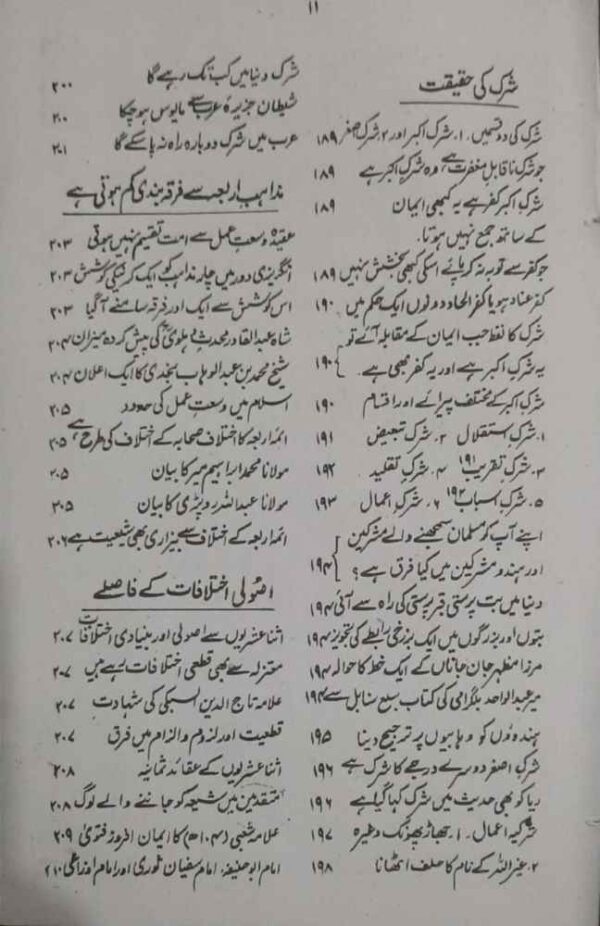 ۱۱
شرک کی حقیقت
شرک کی دو قسمیں ۔ ۱۔ شرک اکبر اور ۲۔ شرک اصغر ۱۸۹
جو شرک ناقابل مغفرت ہے وہ شرک اکبر ہے ۱۸۹
شرک اکبر کفر ہے یہ کبھی ایمان ۱۸۹
کے ساتھ جمع نہیں ہوتا۔
جو کفر سے توبہ نہ کر پائے اسکی کبھی بخشش نہیں ۱۸۹
کفر عناد ہو یا کفر الحاد دونوں ایک حکم میں ۱۹۰
شرک کا لفظ جب ایمان کے مقابلہ آئے تو
یہ شرک اکبر ہے اور یہ کفر بھی ہے ۔ ۱۹۰
شرک اکبر کے مختلف پیرائے اور اقسام ۱۹۰
۱۔ شرک استقلال ۲۔ شرک تبعیض ۱۹۱
۳۔ شرک تقریب ۱۹۱ ۴۔ شرک تقلید ۱۹۲
۵۔ شرک اسباب ۱۹۲ ۶۔ شرک اعمال ۱۹۳
اپنے آپ کو مسلمان سمجھنے والے مشرکین
اور ہندو مشرکین میں کیا فرق ہے ؟ ۱۹۴
دنیا میں بت پرستی قبر پرستی کی راہ سے آئی ۱۹۴
بتوں اور بزرگوں میں ایک برزخی رابطے کی تجویز ۱۹۴
مرزا مظہر جان جاناں کے ایک خط کا حوالہ ۱۹۴
میر عبد الواحد بلگرامی کی کتاب سبع سنابل سے ۱۹۴
ہندوؤں کو وہابیوں پر ترجیح دینا ۱۹۵
شرک اصغر دوسرے درجے کا شرک ہے ۱۹۶
ریا کو بھی حدیث میں شرک کہا گیا ہے ۱۹۶
شرکیہ اعمال ۔ ۱۔ جھاڑ پھونک وغیرہ ۱۹۷
۲۔ غیر اللہ کے نام کا حلف اٹھانا ۱۹۸
شرک دنیا میں کب تک رہے گا ۲۰۰
شیطان جزیرۂ عرب سے مایوس ہو چکا ۲۰۰
عرب میں شرک دوبارہ راہ نہ پا سکے گا ۲۰۱
مذاہب اربعہ سے فرقہ بندی کم ہوتی ہے
عقیدہ وسعتِ عمل سے امت تقسیم نہیں ہوتی ۲۰۳
انگریزی دور میں چار مذاہب کو ایک کرنیکی کوشش ۲۰۳
اس کوشش سے ایک اور فرقہ سامنے آگیا ۲۰۳
شاہ عبد القادر محدث دہلوی کی پیش کردہ میزان ۲۰۴
شیخ محمد بن عبد الوہاب نجدی کا ایک اعلان ۲۰۴
اسلام میں وسعتِ عمل کی حدود ۲۰۵
ائمہ اربعہ کا اختلاف صحابہ کے اختلاف کی طرح ہے ۲۰۵
مولانا محمد ابراہیم میر کا بیان ۲۰۵
مولانا عبد اللہ روپڑی کا بیان ۲۰۵
ائمہ اربعہ کے اختلاف سے بیزاری بھی شیعیت ہے ۲۰۶
اصولی اختلافات کے فاصلے
اثنا عشریوں سے اصولی اور بنیادی اختلافات ۲۰۷
معتزلہ سے بھی قطعی اختلافات رہے ہیں ۲۰۷
علامہ تاج الدین السبکی کی شہادت ۲۰۷
قطعیت اور لزوم والزام میں فرق ۲۰۷
اثنا عشریوں کے عقائد ثمانیہ ۲۰۸
متقدمین میں شیعہ کو جاننے والے لوگ ۲۰۸
علامہ شعبی (۱۰۴ھ) کا ایمان افروز فتویٰ ۲۰۹
امام ابو حنیفہ، امام سفیان ثوری اور امام اوزاعی ۲۱۰